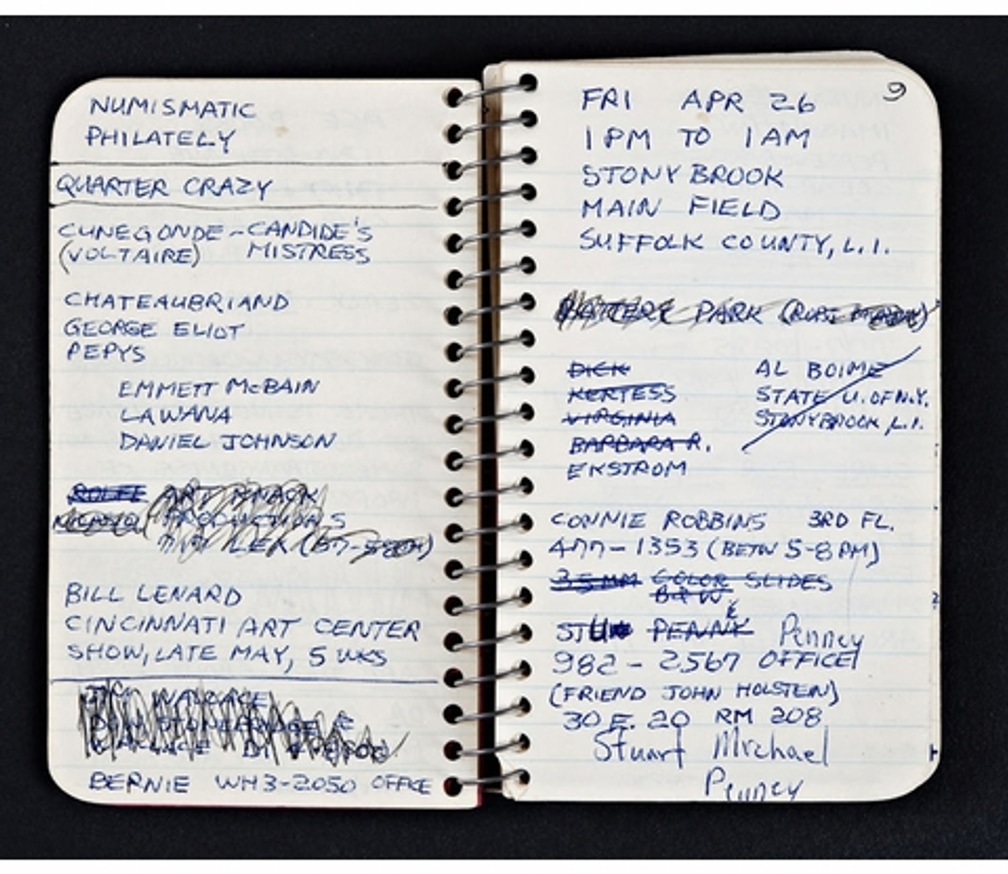 NUMISMATIC
PHILATELY
QUARTER CRAZY
CUNEGONDE - CANDIDE'S
(VOLTAIRE) MISTRESS
CHATEAUBRIAND
GEORGE ELIOT
PEPYS
EMMETT McBAIN
LAWANA
DANIEL JOHNSON
ROLFE ART KNACK
PRODUCTIONS
BILL LENARD
CINCINNATI ART CENTER
SHOW, LATE MAY, 5 WKS
BERNIE WH3-2050 OFFICE
9
FRI APR 26
1 PM TO 1 AM
STONY BROOK
MAIN FIELD
SUFFOLK COUNTY, L.I.
BATTERY PARK
DICK AL BOIME
KERTESS STATE U. OF N.Y.
VIRGINIA STONYBROOK, L.I.
BARBARA R.
EKSTROM
CONNIE ROBBINS 3RD FL.
477-1353 (BETW 5-8 PM)
35 MM COLOR SLIDES
B & W
STU PENNY Penney
982-2567 OFFICE
(FRIEND JOHN HOLSTEIN)
30 E. 20 RM 208
Stuart Michael
Penney